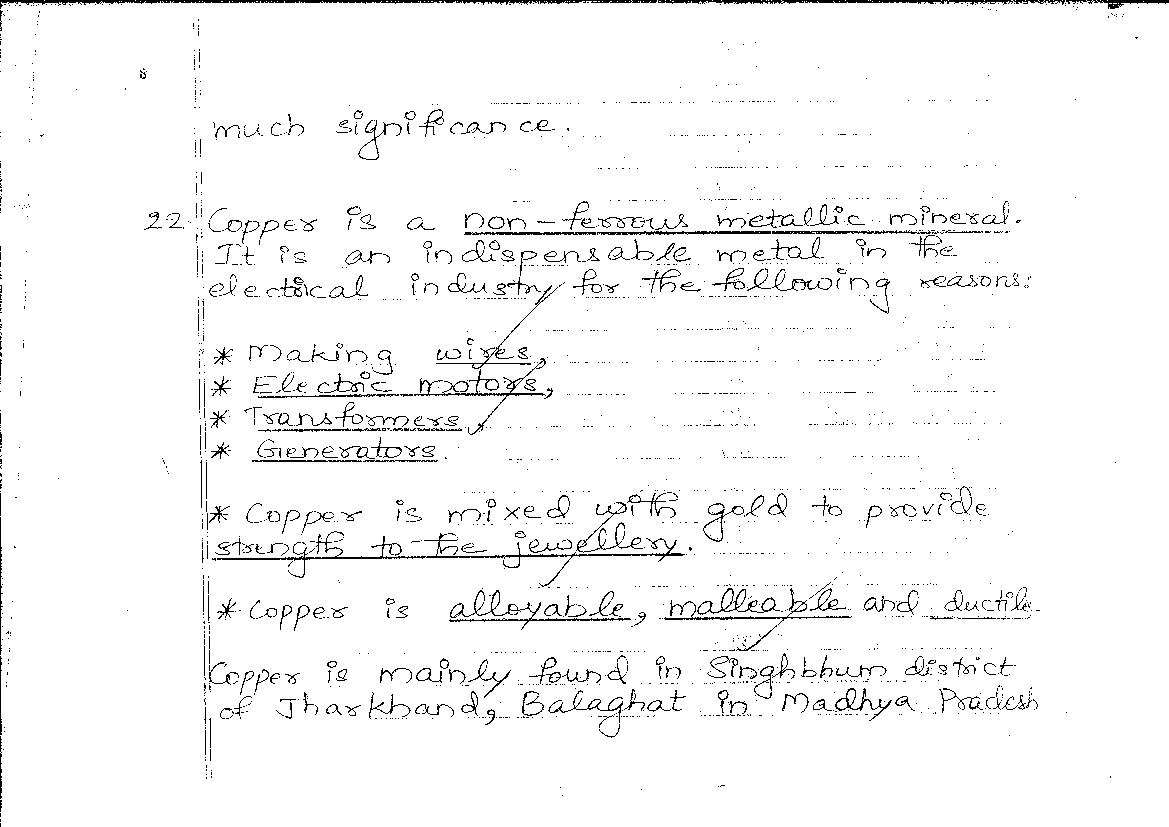 much significance.
22. Copper is a non-ferrous metallic mineral.
It is an indispensable metal in the
electrical industry for the following reasons:
* Making wires,
* Electric motors,
* Transformers,
* Generators.
* Copper is mixed with gold to provide
strength to the jewellery.
* Copper is alloyable, malleable and ductile.
Copper is mainly found in Singhbhum district
of Jharkhand, Balaghat in Madhya Pradesh